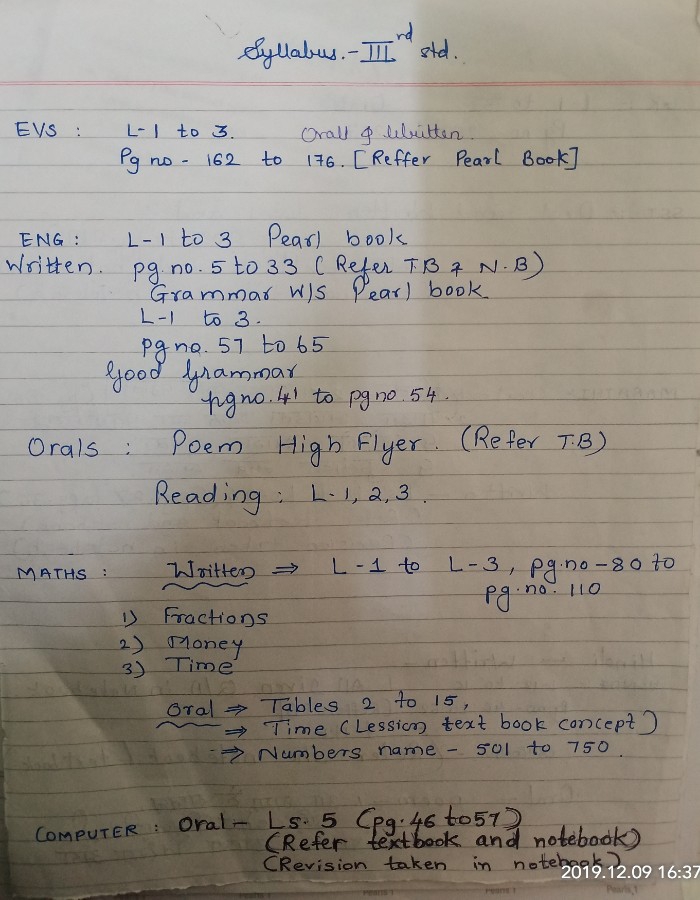 Syllabus.- III rd std.
EVS : L-1 to 3. Orall & Written
Pg no - 162 to 176. [Reffer Pearl Book]
ENG : L-1 to 3 Pearl book
Written. pg. no. 5 to 33 ( Refer T.B & N.B)
Grammar W/S Pearl book
L-1 to 3.
pg no. 57 to 65
Good Grammar
pg no. 41 to pg no. 54.
Orals : Poem High Flyer. (Refer T.B)
Reading : L-1, 2, 3.
MATHS : Written ⇒ L-1 to L-3, pg.no-80 to
pg. no. 110
1) Fractions
2) Money
3) Time
Oral ⇒ Tables 2 to 15,
⇒ Time (Lession text book concept)
⇒ Numbers name - 501 to 750.
COMPUTER : Oral - Ls. 5 (pg. 46 to 57)
(Refer textbook and notebook)
(Revision taken in notebook)
2019.12.09 16:37